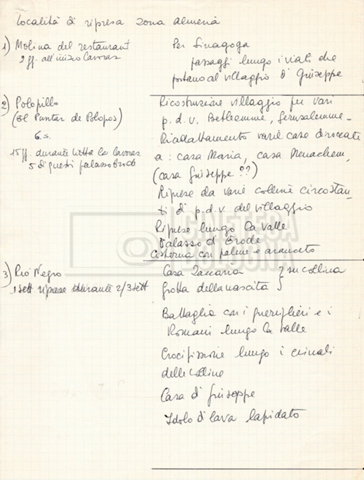 Località di ripresa zona Almeria
1) Molina del restaurant
2 ff. all'inizio lavoraz.
Per Sinagoga
paesaggi lungo i viali che
portano al villaggio di Giuseppe
2) Polopillo
(El Puntar de Polopos)
6 s.
15 ff. durante tutta la lavoraz.
5 di questi palazzo Erode
Ricostruzione villaggio per vari
p. d. v. Betlemme, Gerusalemme
Riadattamento varie case diroccate
a: casa Maria, casa Menachem,
(casa Giuseppe ??)
Riprese da varie colline circostan
ti di p.d.v. del villaggio
Riprese lungo la valle
Palazzo di Erode
Cisterna con palme e aranceto
3) Rio Negro
1 sett. riprese durante 2/3 sett
Casa Zaccaria
Grotta della nascita } in collina
Battaglia con i guerriglieri e i
Romani lungo la valle
Crocifissione lungo i crinali
delle colline
Casa di Giuseppe
Idolo di lava lapidato
CINETECA
BOLOGNA